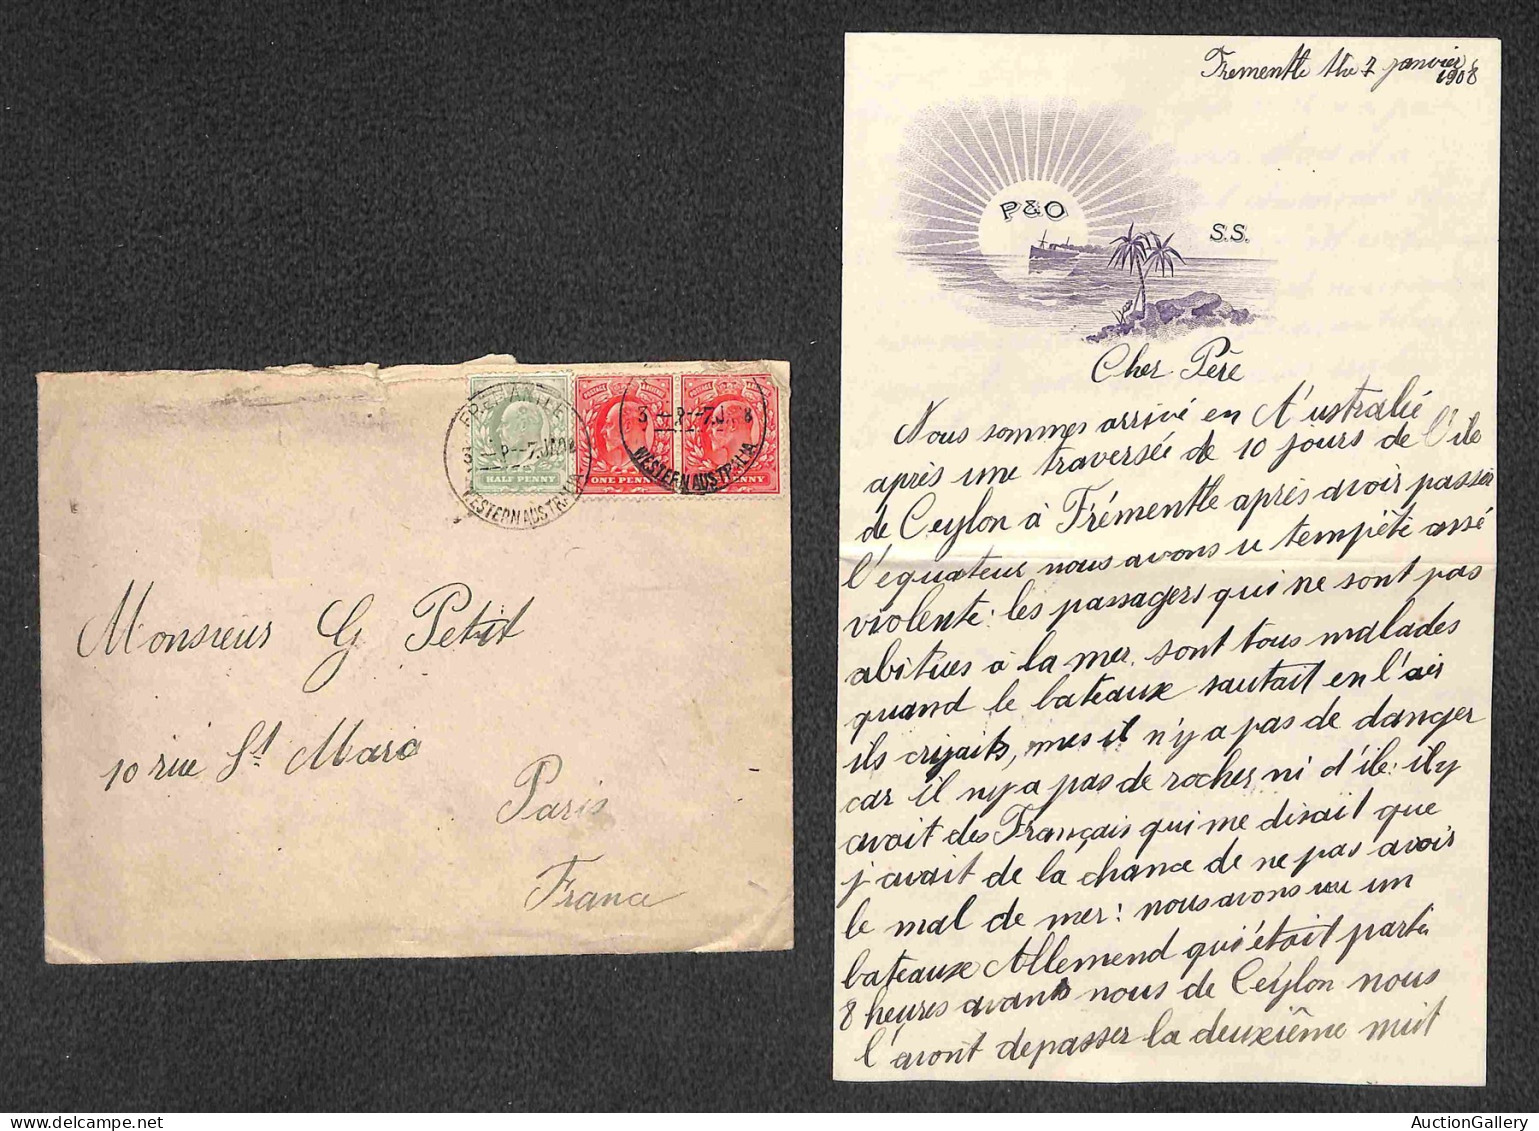 FREMANTLE
3 - P - 7.JA 08
WESTERN AUSTRALIA
HALF PENNY
ONE PENNY
3 - P - 7.JA 8
WESTERN AUSTRALIA
PENNY
Monsieur G Petit
10 rue St Marc
Paris
France
Frementle the 7 janvier
1908
P&O
S.S.
Cher Père
Nous sommes arrivé en A'ustralie
après une traversée de 10 jours de l'ile
de Ceylon à Frémentle après avoir passer
l'equateur nous avons u tempête assé
violente: les passagers qui ne sont pas
abitues à la mer, sont tous malades
quand le bateaux sautait en l'air
ils crijaits, mes il n'y a pas de danger
car il n'y a pas de rocher ni d'ile: il y
avait des Français qui me disait que
j'avait de la chance de ne pas avoir
le mal de mer: nous avons vu un
bateaux Allemend qui était partis
8 heures avant nous de Ceylon nous
l'avont depasser la deuxième nuit
AuctionGallery